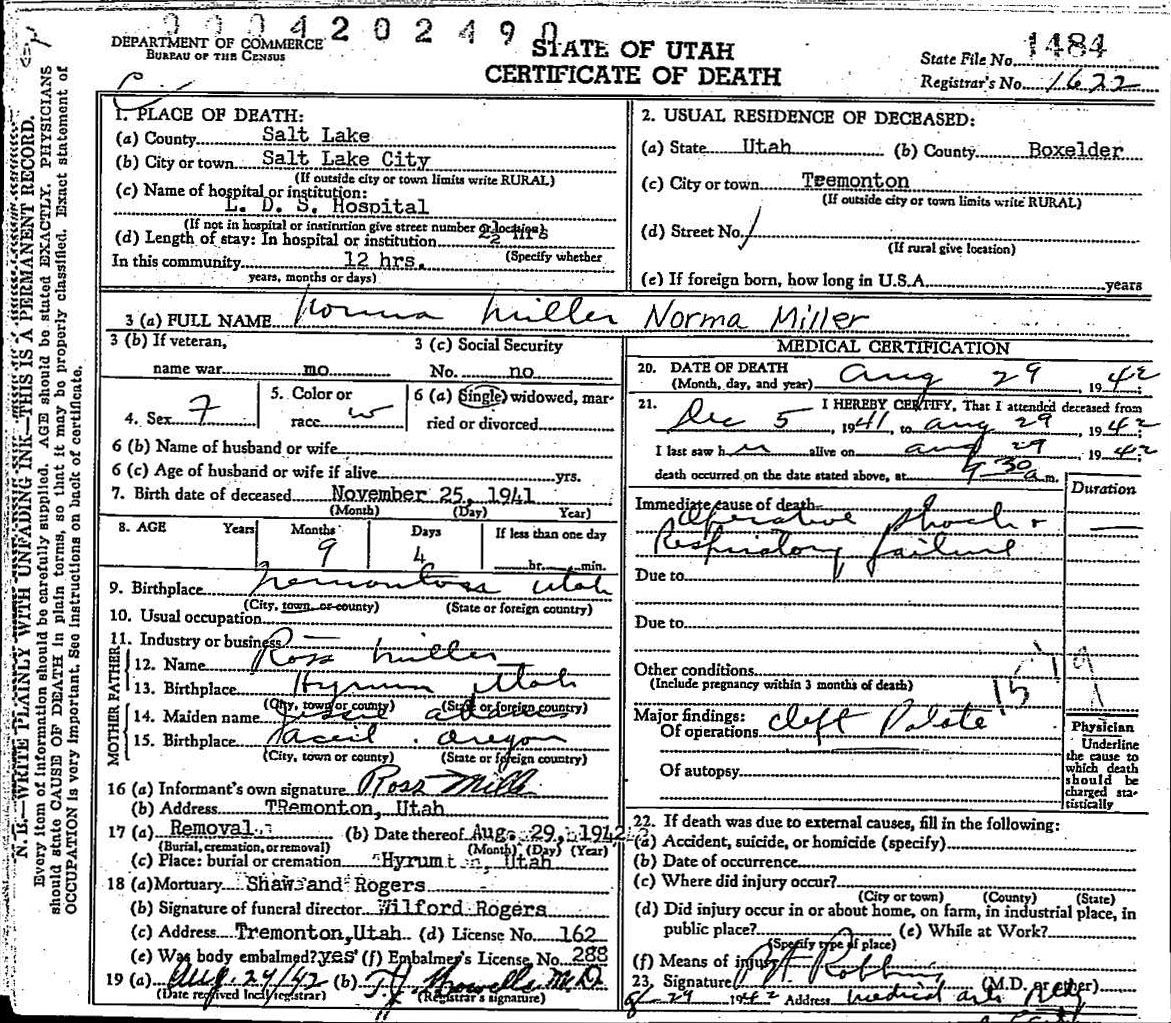 0004202490
DEPARTMENT OF COMMERCE
BUREAU OF THE CENSUS
STATE OF UTAH
CERTIFICATE OF DEATH
State File No. 1484
Registrar's No. 1622
N. B.—WRITE PLAINLY WITH UNFADING INK—THIS IS A PERMANENT RECORD.
Every item of information should be carefully supplied. AGE should be stated EXACTLY. PHYSICIANS
should state CAUSE OF DEATH in plain terms, so that it may be properly classified. Exact statement of
OCCUPATION is very important. See instructions on back of certificate.
1. PLACE OF DEATH:
(a) County Salt Lake
(b) City or town Salt Lake City
(If outside city or town limits write RURAL)
(c) Name of hospital or institution:
L. D. S. Hospital
(If not in hospital or institution give street number or location)
(d) Length of stay: In hospital or institution hrs
(Specify whether
In this community 12 hrs.
years, months or days)
2. USUAL RESIDENCE OF DECEASED:
(a) State Utah (b) County Boxelder
(c) City or town Tremonton
(If outside city or town limits write RURAL)
(d) Street No. /
(If rural give location)
(e) If foreign born, how long in U.S.A. years
3 (a) FULL NAME Norma Miller Norma Miller
3 (b) If veteran,
name war no
3 (c) Social Security
No. no
4. Sex F
5. Color or
race w
6 (a) Single, widowed, mar-
ried or divorced
6 (b) Name of husband or wife
6 (c) Age of husband or wife if alive yrs.
7. Birth date of deceased November 25, 1941
(Month) (Day) Year)
8. AGE Years Months Days If less than one day
9 4 hr. min.
9. Birthplace Tremonton Utah
(City, town or county) (State or foreign country)
10. Usual occupation
11. Industry or business
FATHER
12. Name Ross Miller
13. Birthplace Hyrum Utah
(City, town or county) (State or foreign country)
MOTHER
14. Maiden name Adams
15. Birthplace Oregon
(City, town or county) (State or foreign country)
16 (a) Informant's own signature Ross Mill
(b) Address TRemonton, Utah
17 (a) Removal (b) Date thereof Aug. 29, 1942
(Burial, cremation, or removal) (Month) (Day) (Year)
(c) Place: burial or cremation Hyrum, Utah
18 (a) Mortuary Shaw and Rogers
(b) Signature of funeral director Wilford Rogers
(c) Address Tremonton, Utah (d) License No. 162
(e) Was body embalmed? yes (f) Embalmer's License No. 288
19 (a) Aug. 29/42 (b) M.D.
(Date received local registrar) (Registrar's signature)
MEDICAL CERTIFICATION
20. DATE OF DEATH
(Month, day, and year) Aug 29, 1942
21. I HEREBY CERTIFY, That I attended deceased from
Dec 5, 1941, to Aug 29, 1942
I last saw h alive on Aug 29, 1942
death occurred on the date stated above, at 9 30 a.m.
Duration
Immediate cause of death
Operative Shock +
Respiratory failure
Due to
Due to
Other conditions
(Include pregnancy within 3 months of death)
Major findings:
Of operations Cleft Palate
Of autopsy
Physician
Underline
the cause to
which death
should be
charged sta-
tistically
22. If death was due to external causes, fill in the following:
(a) Accident, suicide, or homicide (specify)
(b) Date of occurrence
(c) Where did injury occur?
(City or town) (County) (State)
(d) Did injury occur in or about home, on farm, in industrial place, in
public place? (e) While at Work?
(Specify type of place)
(f) Means of injury
23. Signature Robbins (M.D. or other)
8-29 1942 Address Medical Arts Bldg